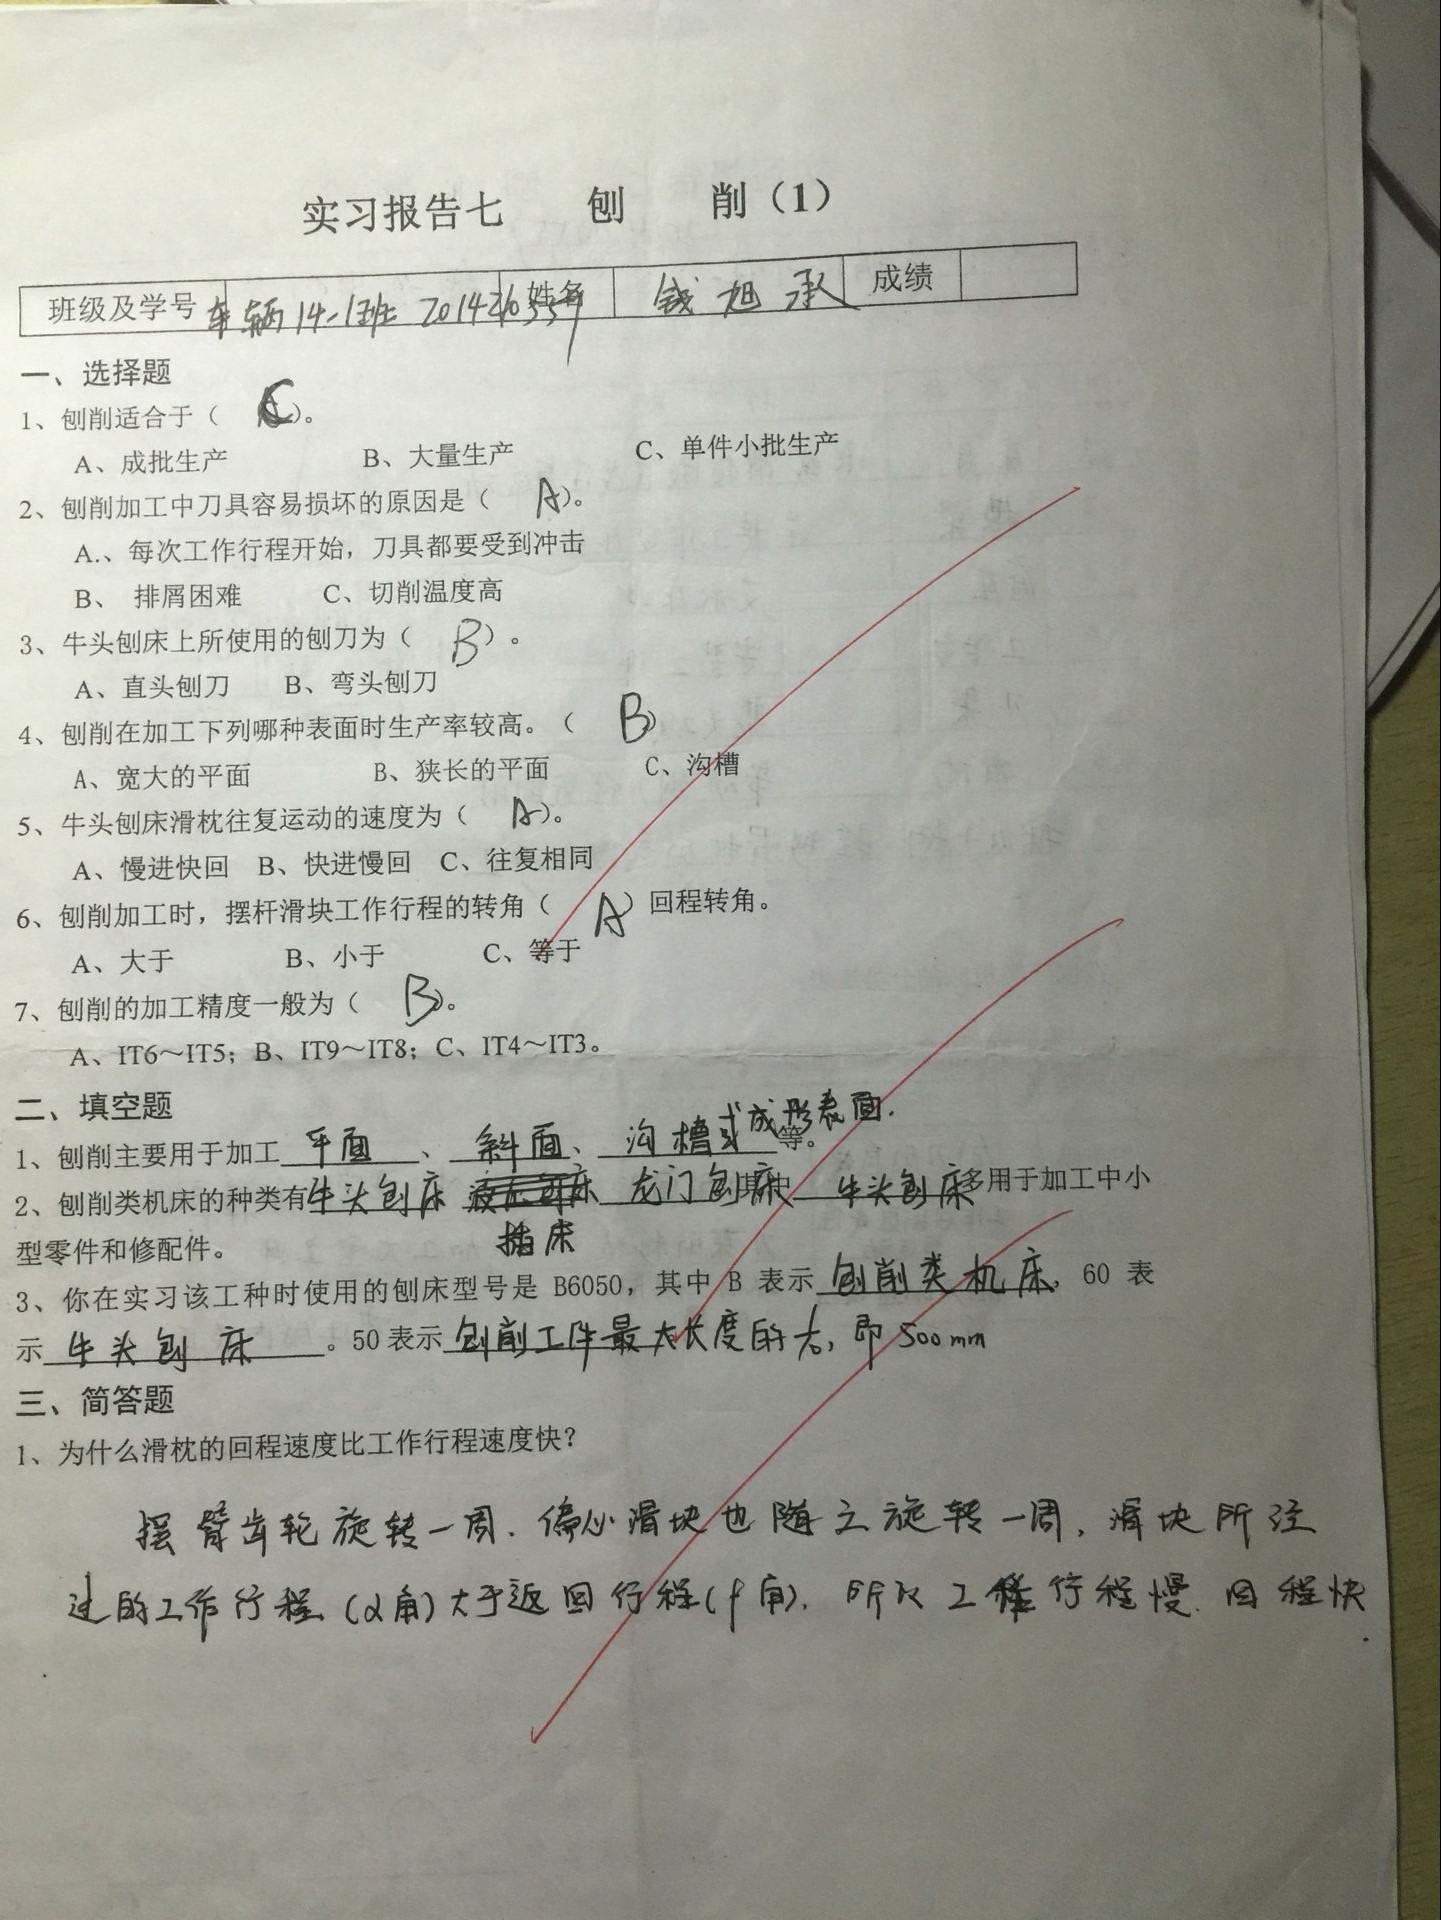 实习报告七 刨 削（1）
班级及学号 车辆14-1班 姓名 钱旭承 成绩
一、选择题
1、刨削适合于（ C ）。
A、成批生产 B、大量生产 C、单件小批生产
2、刨削加工中刀具容易损坏的原因是（ A ）。
A.、每次工作行程开始，刀具都要受到冲击
B、 排屑困难 C、切削温度高
3、牛头刨床上所使用的刨刀为（ B ）。
A、直头刨刀 B、弯头刨刀
4、刨削在加工下列哪种表面时生产率较高。（ B ）
A、宽大的平面 B、狭长的平面 C、沟槽
5、牛头刨床滑枕往复运动的速度为（ A ）。
A、慢进快回 B、快进慢回 C、往复相同
6、刨削加工时，摆杆滑块工作行程的转角（ A ）回程转角。
A、大于 B、小于 C、等于
7、刨削的加工精度一般为（ B ）。
A、IT6～IT5；B、IT9～IT8；C、IT4～IT3。
二、填空题
1、刨削主要用于加工 平面 、 斜面 、 沟槽或成形表面. 等。
2、刨削类机床的种类有 牛头刨床 龙门刨床 其中 牛头刨床 多用于加工中小
插床
型零件和修配件。
3、你在实习该工种时使用的刨床型号是 B6050，其中 B 表示 刨削类机床，60 表
示 牛头刨床 。50 表示 刨削工件最大长度的1/10，即500mm
三、简答题
1、为什么滑枕的回程速度比工作行程速度快？
摆臂齿轮旋转一周，偏心滑块也随之旋转一周，滑块所经
过的工作行程（α角）大于返回行程（β角），所以工作行程慢，回程快